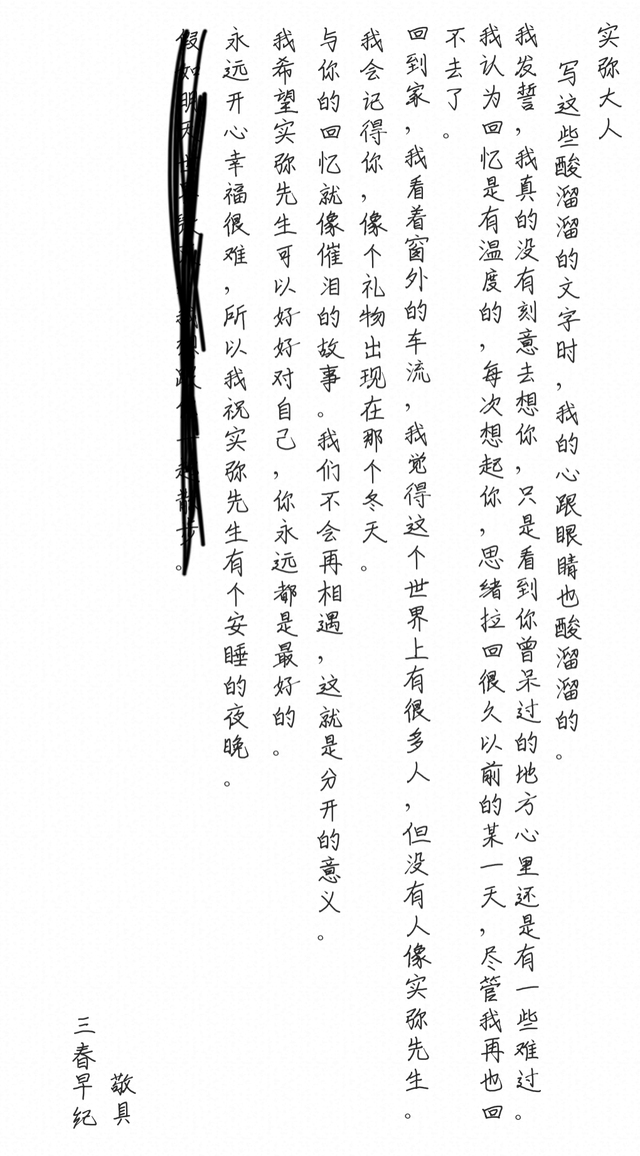 实弥大人
写这些酸溜溜的文字时，我的心跟眼睛也酸溜溜的。
我发誓，我真的没有刻意去想你，只是看到你曾呆过的地方心里还是有一些难过。
我认为回忆是有温度的，每次想起你，思绪拉回很久以前的某一天，尽管我再也回
不去了。
回到家，我看着窗外的车流，我觉得这个世界上有很多人，但没有人像实弥先生。
我会记得你，像个礼物出现在那个冬天。
与你的回忆就像催泪的故事。我们不会再相遇，这就是分开的意义。
我希望实弥先生可以好好对自己，你永远都是最好的。
永远开心幸福很难，所以我祝实弥先生有个安睡的夜晚。
假如明天
散步。
敬具
三春早纪